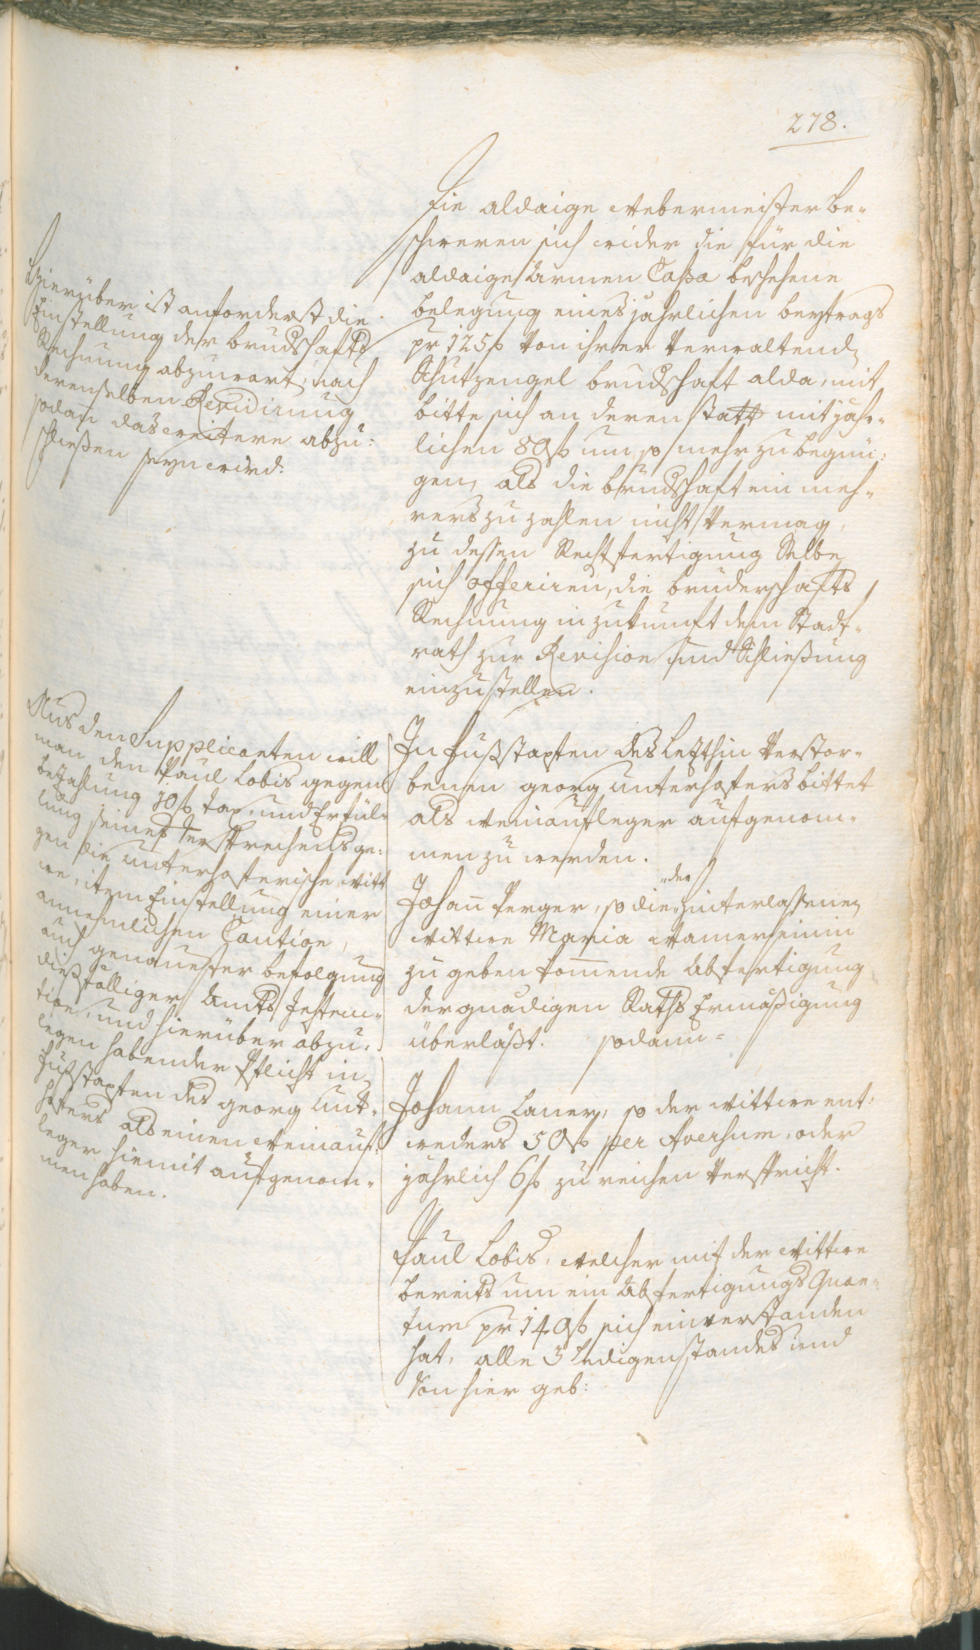 278.
Die aldaige Webermeister be-
schweren sich wider die für die
aldaige Armen Cassa beschehene
belegung eines jährlichen beytrags
pr 125 f von ihrer verwaltend
Schutzengel brudschaft alda, mit
bitte sich an deren statt mit jähr-
lichen 80 f um so mehr zu begnü-
gen, als die brudschaft ein meh-
rers zu zahlen nicht vermag,
zu dessen Rechtfertigung Selbe
sich offeriren, die bruderschafts
Rechnung in zukunft dem Stadt-
rath zur Revision und Schließung
einzustellen.
Hierüber ist anforderst die
Einstellung der brudschafts
Rechnung abzuwart, nach
derenselben Revidirung
sodan das weitere abzu-
schließen seyn wird:
In Fußstapfen des letzthin verstor-
benen georg unterhofers bittet
als Weinaufleger aufgenom-
men zu werden.
Johann Perger, so die hinterlassene
der
wittwe Maria Wamerseinin
zu geben komende Abfertigung
der gnädigen Raths Ermäßigung
überläßt. sodann =
Johann Laner, so der wittwe ent-
weders 50 f per Aversum, oder
jährlich 6 f zu reichen verspricht.
Paul Lobis, welcher mit der wittwe
bereits um ein Abfertigungs Quan-
tum pr 140 f sich einverstanden
hat, alle 3 ledigen standes und
von hier geb:
Aus den Supplicanten will
man den Paul Lobis gegen
bezahlung 10 f tax, und Erfül-
lung seines Versprechens ge-
gen die unterhoferische witt-
we, item Einstellung einer
annemlichen Caution,
auch genauester befolgung
dießfälliger Amts Instruc-
tion, und hierüber abzu-
legen habender Pflicht in
Fußstapfen des georg Unt-
hofers als einen Weinauf-
leger hiemit aufgenom-
men haben.